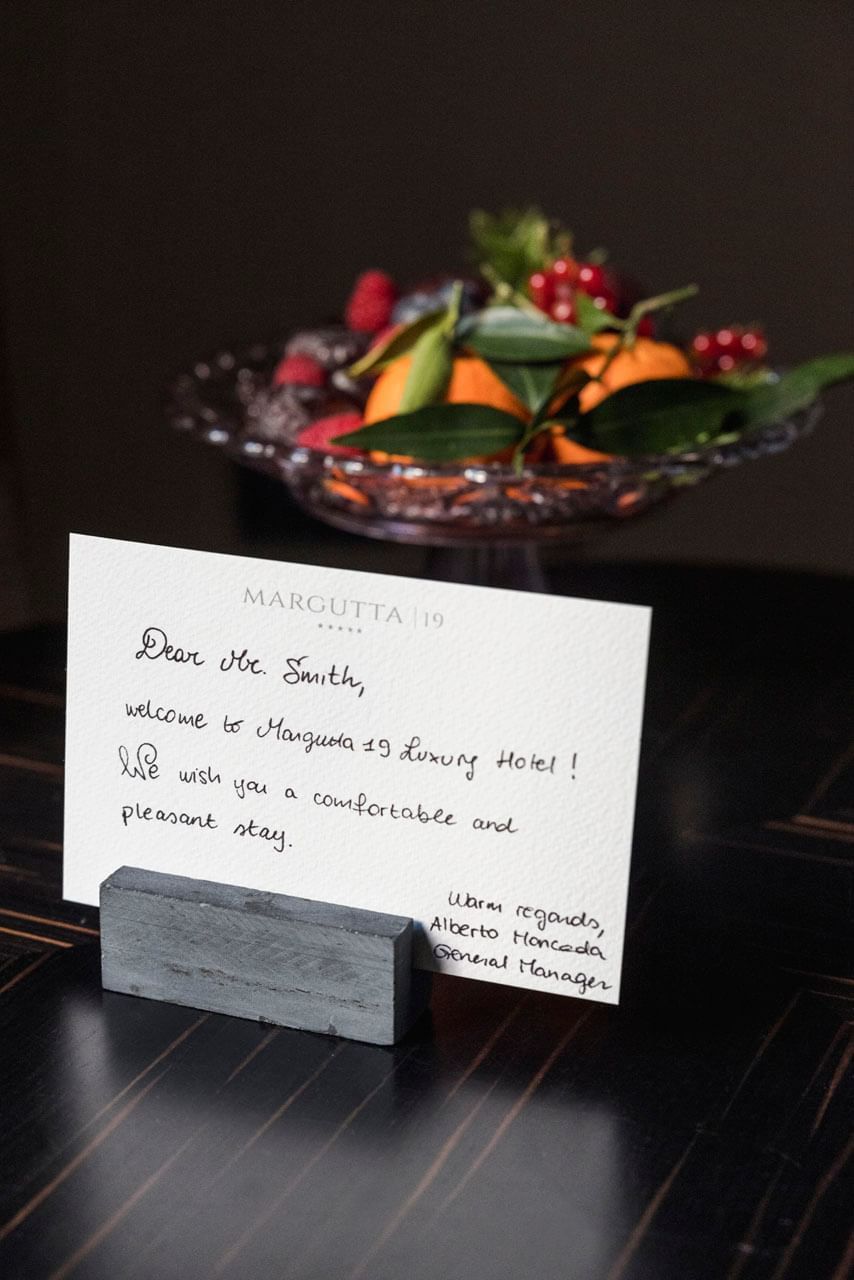 MARGUTTA | 19
★★★★★
Dear Mr. Smith,
welcome to Margutta 19 Luxury Hotel !
We wish you a comfortable and
pleasant stay.
Warm regards,
Alberto Moncada
General Manager